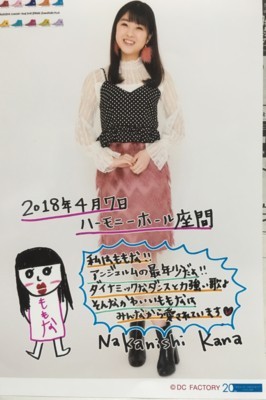 2018年4月7日
ハーモニーホール座間
私はももな!!
アンジュルムの最年少だょ!!
ダイナミックなダンスと力強い歌♪
そんなかわいいももなは
みんなから愛されています♥
ももな
Nakanishi Kana
©DC FACTORY 20